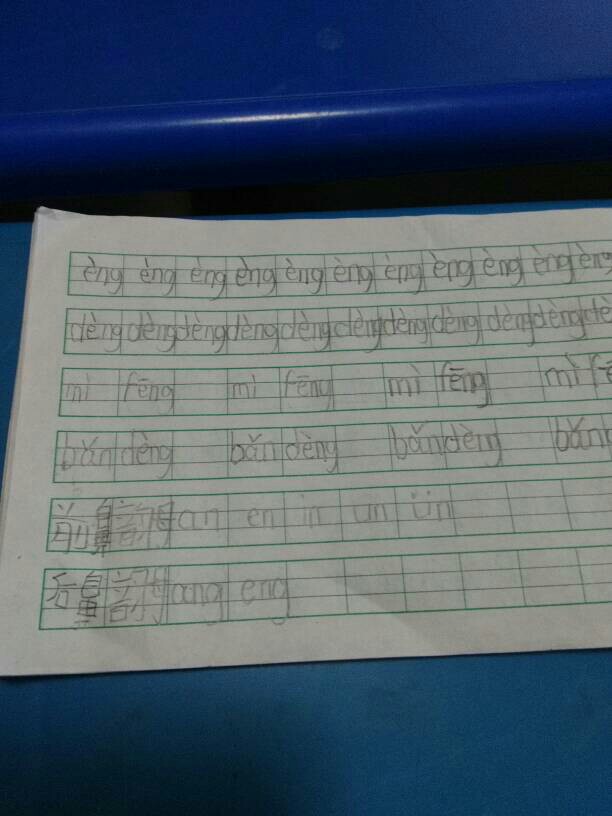 èng èng èng èng èng èng èng èng èng èng èng
dèng dèng dèng dèng dèng dèng dèng dèng dèng dèng dè
mì fēng mì fēng mì fēng mì fē
bǎn dèng bǎn dèng bǎn dèng bǎn
前鼻韵母 an en in un ün
后鼻韵母 ang eng